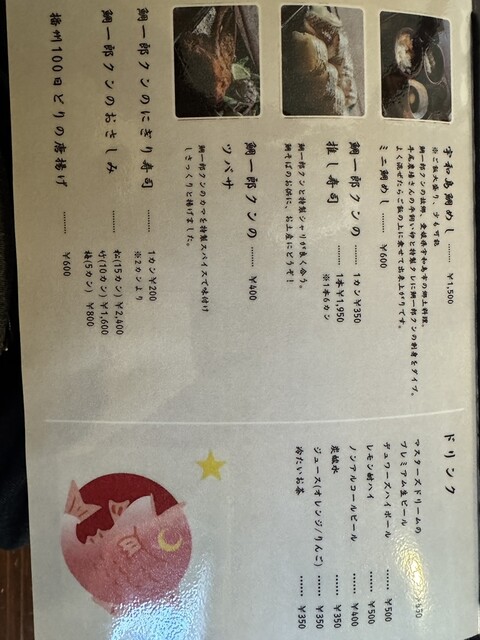 宇和島鯛めし …… ¥1,500
※ご飯大盛り、少も可能
鯛一郎クンの故郷、愛媛県宇和島市の郷土料理。
特製タレに鯛一郎クンの刺身をダイブ。
よく混ぜたらご飯の上に乗せて出来上がりです。
ミニ鯛めし …… ¥600
鯛一郎クンの推し寿司 …… 1カン¥350
1本¥1,950
※1本6カン
鯛一郎クンと特製シャリが良く合う。
鯛そばのお供に、お土産にどうぞ!
鯛一郎クンのツバサ …… ¥400
鯛一郎クンのカマを特製スパイスで味付け
しさっくりと揚げました。
鯛一郎クンのにぎり寿司 …… 1カン¥200
※2カンより
鯛一郎クンのおさしみ …… 松(15カン)¥2,400
竹(10カン)¥1,600
梅(5カン) ¥800
播州100日どりの唐揚げ …… ¥600
ドリンク
マスターズドリームの
プレミアム生ビール
デュワーズハイボール …… ¥500
レモン酎ハイ …… ¥500
ノンアルコールビール …… ¥400
炭酸水 …… ¥350
ジュース(オレンジ/りんご) …… ¥350
冷たいお茶 …… ¥350